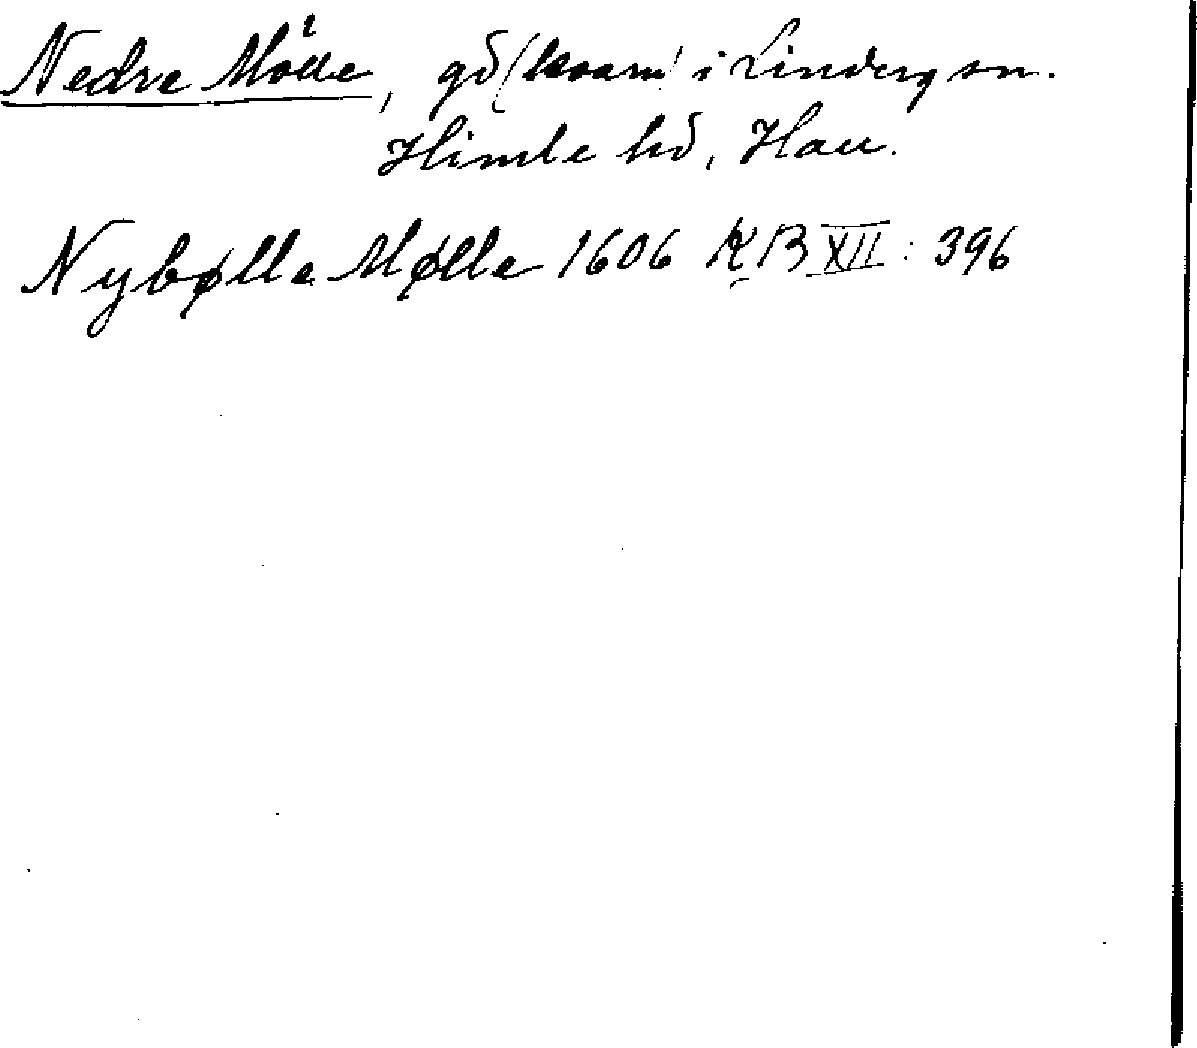 Nedre Mölle, gd (kvarn) i Lindberg sn.
Himle hd, Hall.
Nybølle Mølle 1606 KB XII: 396